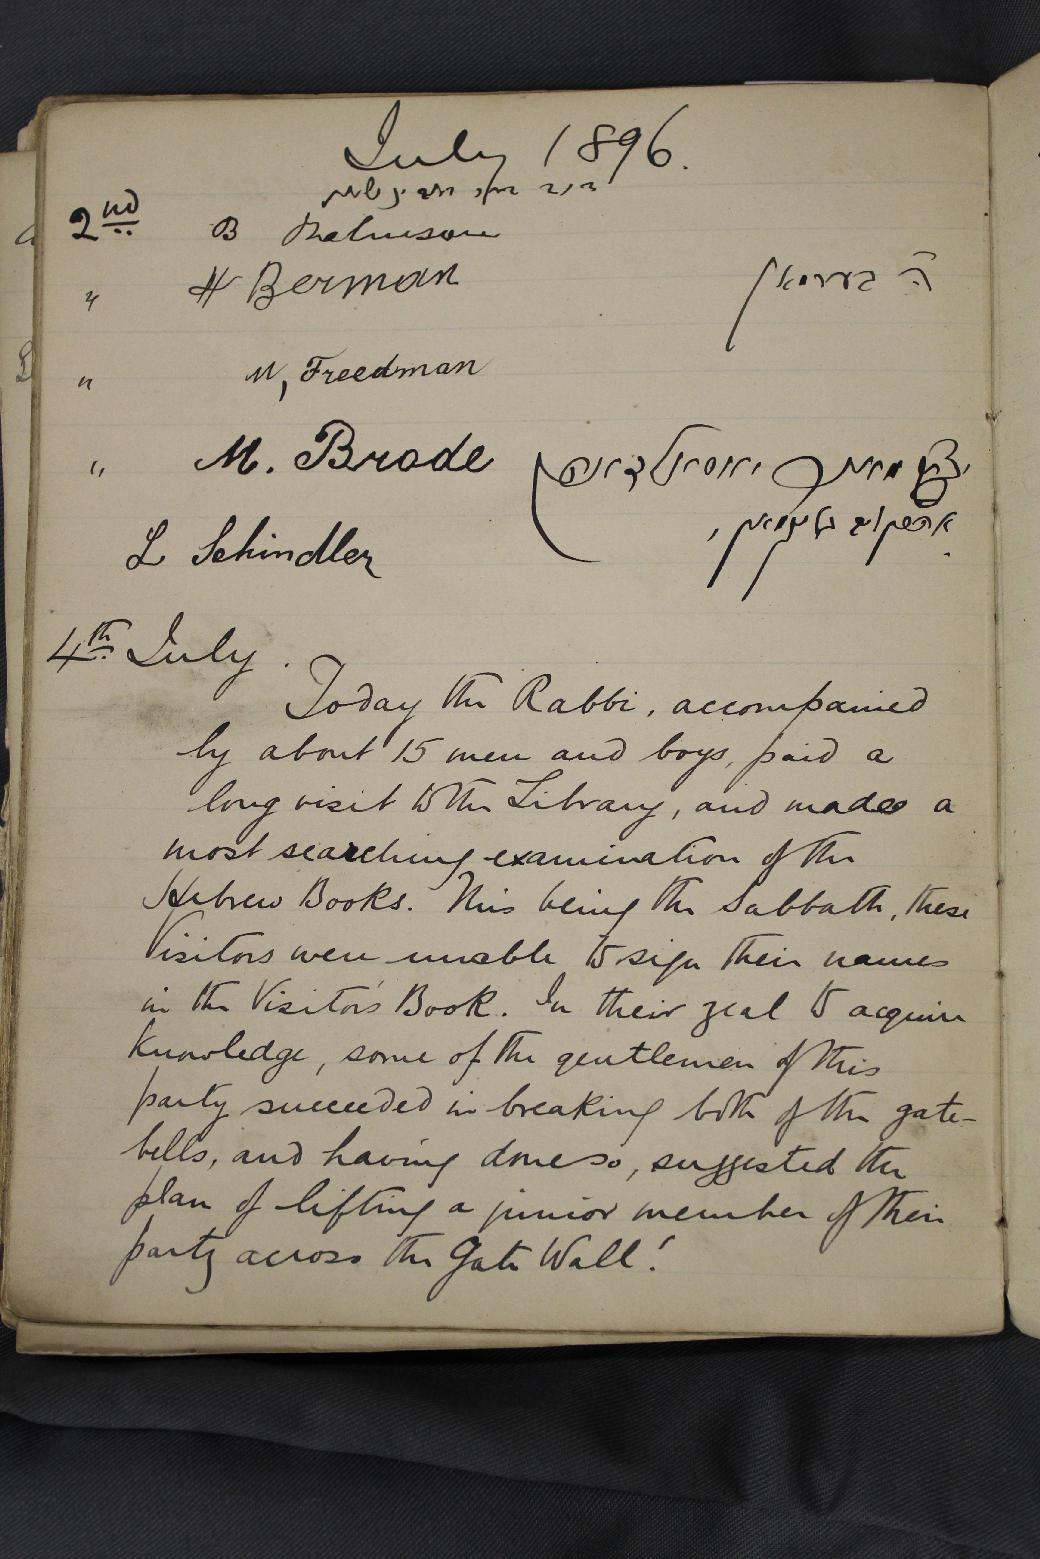 July 1896.
2nd B
" H Berman ה בערמאן
" M, Freedman
" M. Brode
L Schindler
4th July.
Today the Rabbi, accompanied
by about 15 men and boys, paid a
long visit to the Library, and made a
most searching examination of the
Hebrew Books. This being the Sabbath, these
Visitors were unable to sign their names
in the Visitor's Book. In their zeal to acquire
knowledge, some of the gentlemen of this
party succeeded in breaking both of the gate-
bells, and having done so, suggested the
plan of lifting a junior member of their
party across the Gate Wall!